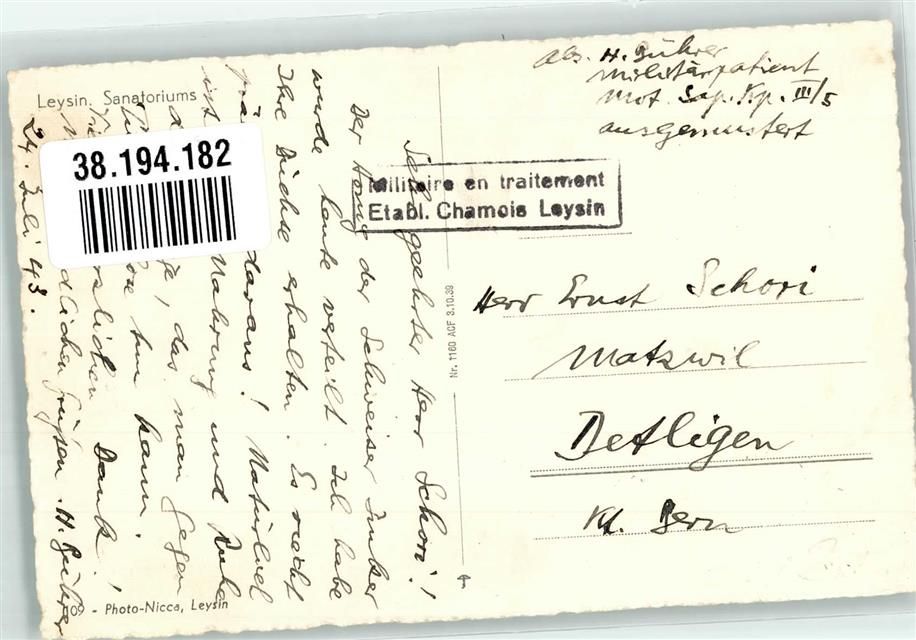 Leysin. Sanatoriums
38.194.182
Abs. H. Bührer
Militärpatient
Mot. Sap. Kp. III/5
ausgemustert
Militaire en traitement
Etabl. Chamois Leysin
Herr Ernst Schori
Matzwil
Detligen
Kt. Bern
Nr. 1160 ACF 3.10.39
Sehr geehrter Herr Schori!
Der Honig der Schweizer Imker
wurde heute verteilt. Ich habe
Ihre Büchse erhalten. Es riecht
daraus! Natürlich
ist Nahrung und Ruhe
das man gegen
tun kann.
Dank!
Grüßen H. Bührer
24. Juli 43.
109 - Photo-Nicca, Leysin